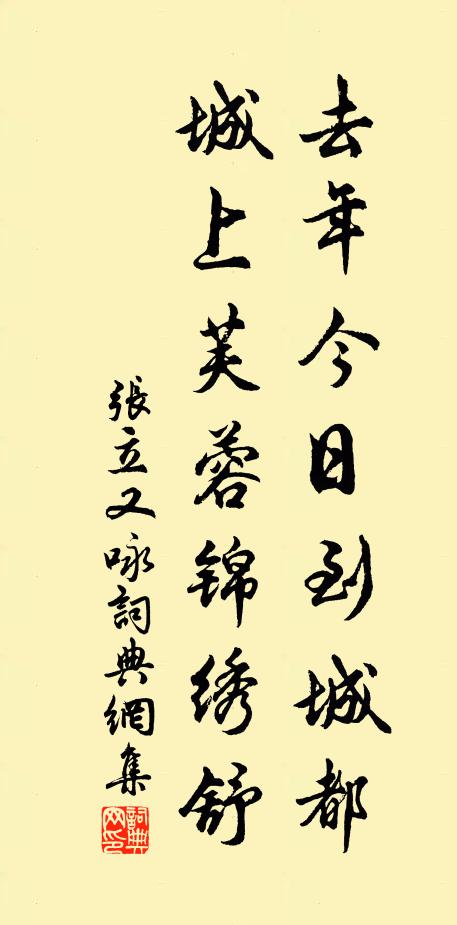 去年今日到城都
城上芙蓉锦绣舒
張立又咏詞典網集
詞典网印